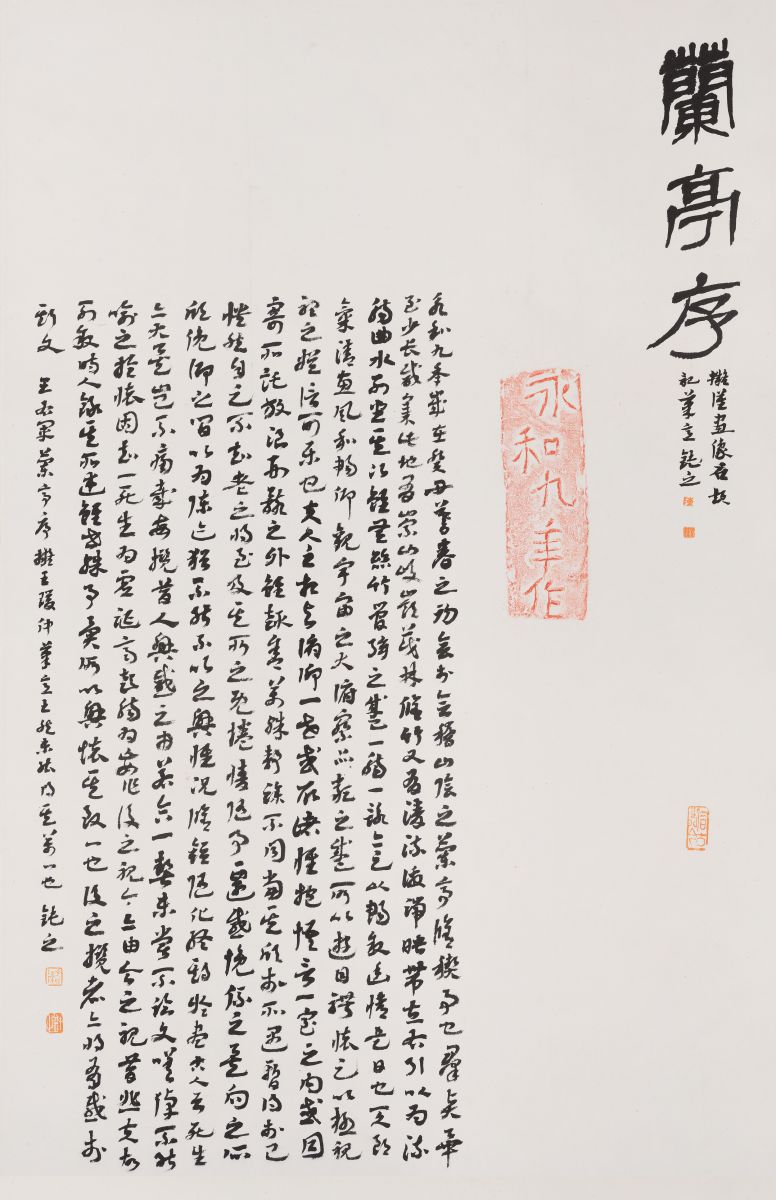 蘭亭序
擬漢畫像石題
記筆意 鈍之
永和九年作
永和九年歲在癸丑暮春之初會於會稽山陰之蘭亭脩稧事也群賢畢
至少長咸集此地有崇山峻嶺茂林脩竹又有清流激湍映帶左右引以為流
觴曲水列坐其次雖無絲竹管弦之盛一觴一詠亦足以暢敘幽情是日也天朗
氣清惠風和暢仰觀宇宙之大俯察品類之盛所以遊目騁懷足以極視
聽之娛信可樂也夫人之相與俯仰一世或取諸懷抱悟言一室之內或因
寄所託放浪形骸之外雖趣舍萬殊靜躁不同當其欣於所遇暫得於己
怏然自足不知老之將至及其所之既惓情隨事遷感慨係之矣向之所
欣俛仰之間以為陳迹猶不能不以之興懷況脩短隨化終期於盡古人云死生
亦大矣豈不痛哉每攬昔人興感之由若合一契未嘗不臨文嗟悼不能
喻之於懷固知一死生為虛誕齊彭殤為妄作後之視今亦由今之視昔悲夫故
列敘時人錄其所述雖世殊事異所以興懷其致一也後之攬者亦將有感於
斯文 王右軍蘭亭序擬王瑗仲筆意得其萬一也 鈍之